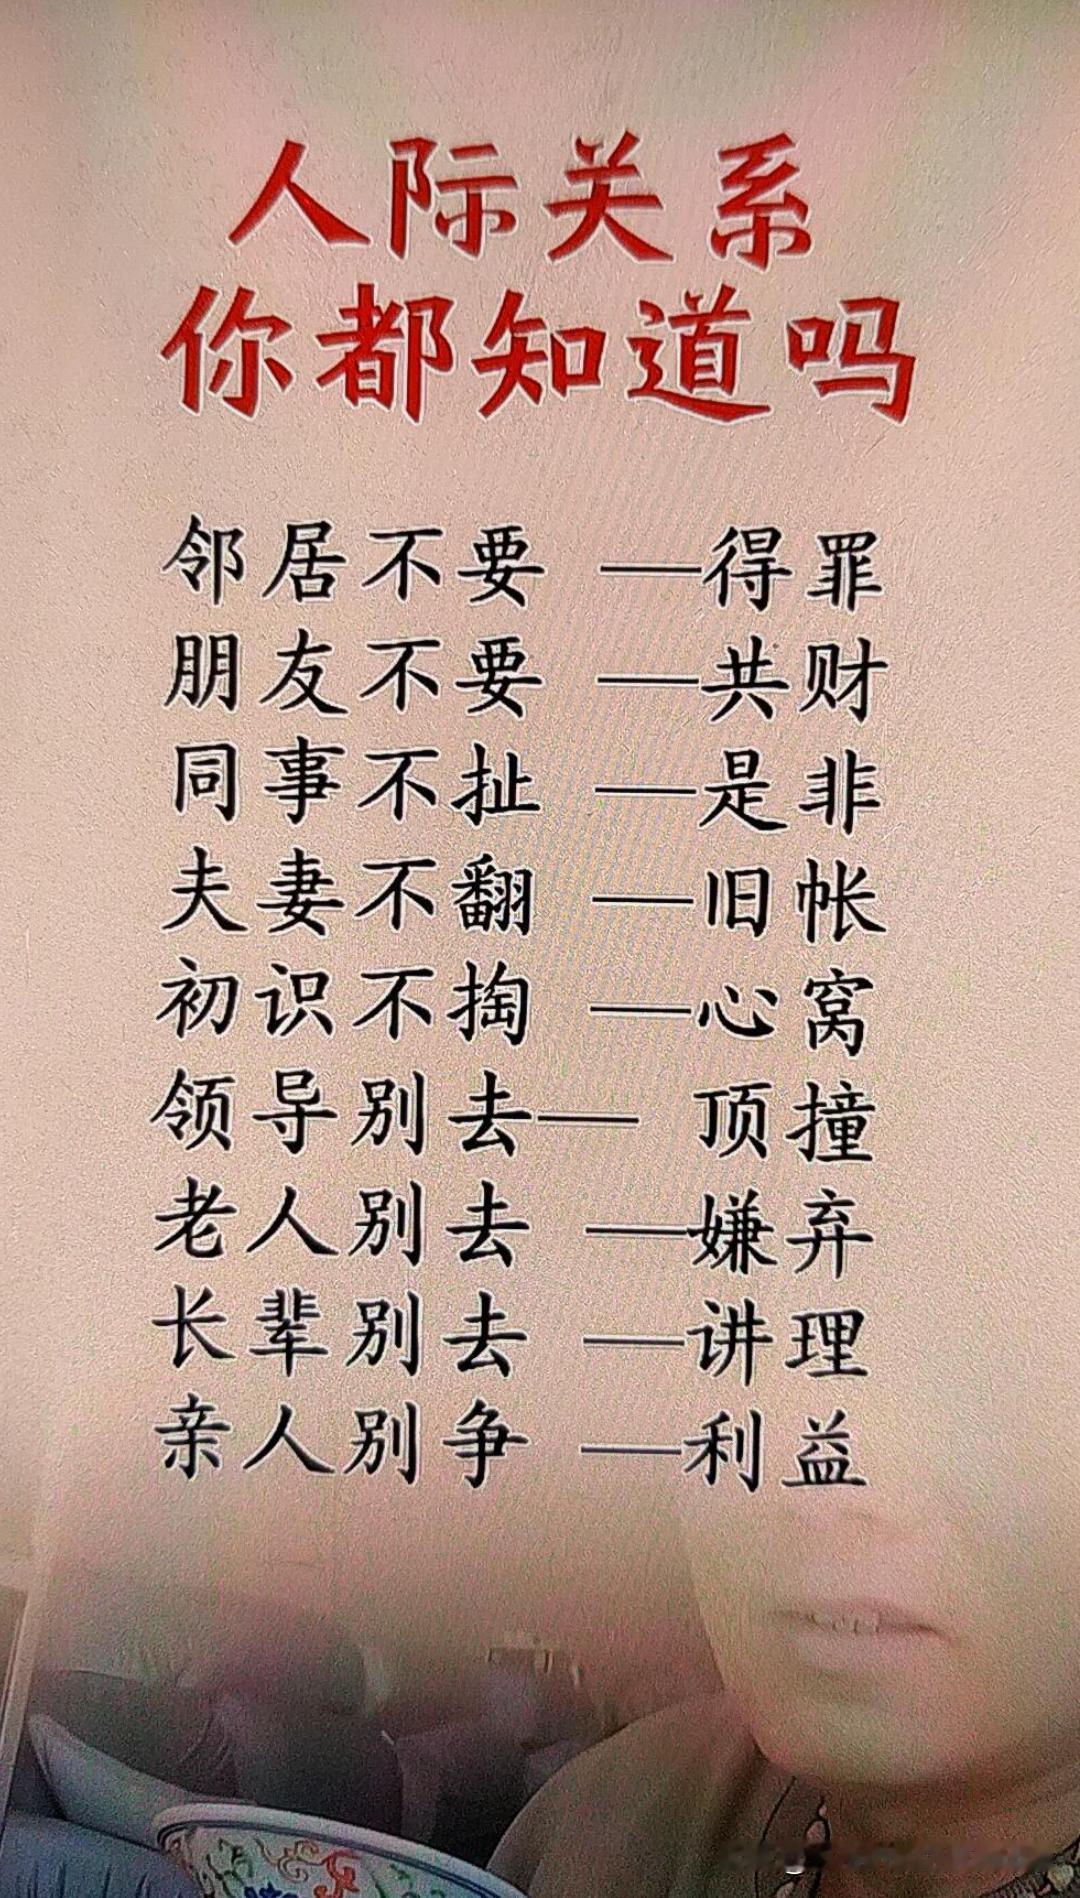 人际关系
你都知道吗
邻居不要 —得罪
朋友不要 —共财
同事不扯 —是非
夫妻不翻 —旧帐
初识不掏 —心窝
领导别去— 顶撞
老人别去 —嫌弃
长辈别去 —讲理
亲人别争 —利益